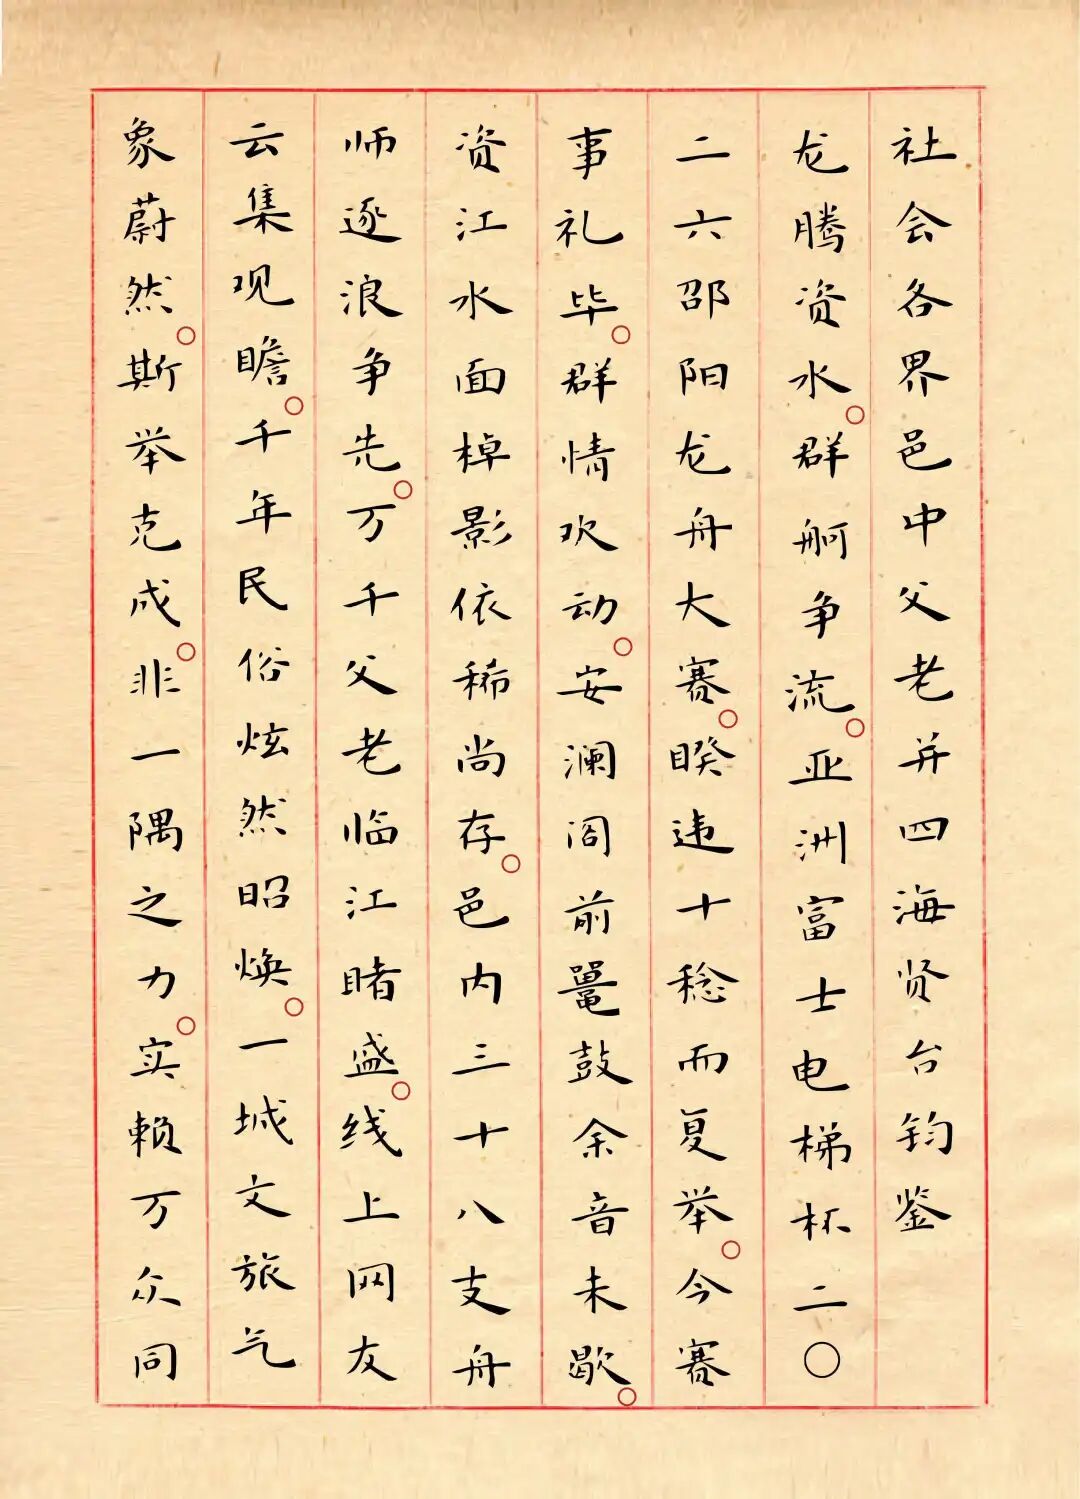 社会各界邑中父老并四海贤台钧鉴
龙腾资水。群舸争流。亚洲富士电梯杯二〇
二六邵阳龙舟大赛。睽违十稔而夏举。今赛
事礼毕。群情欢动。安澜阁前鼍鼓余音未歇。
资江水面棹影依稀尚存。邑内三十八支舟
师逐浪争先。万千父老临江睹盛。线上网友
云集观瞻。千年民俗炫然昭焕。一城文旅气
象蔚然。斯举克成。非一隅之力。实赖万众同